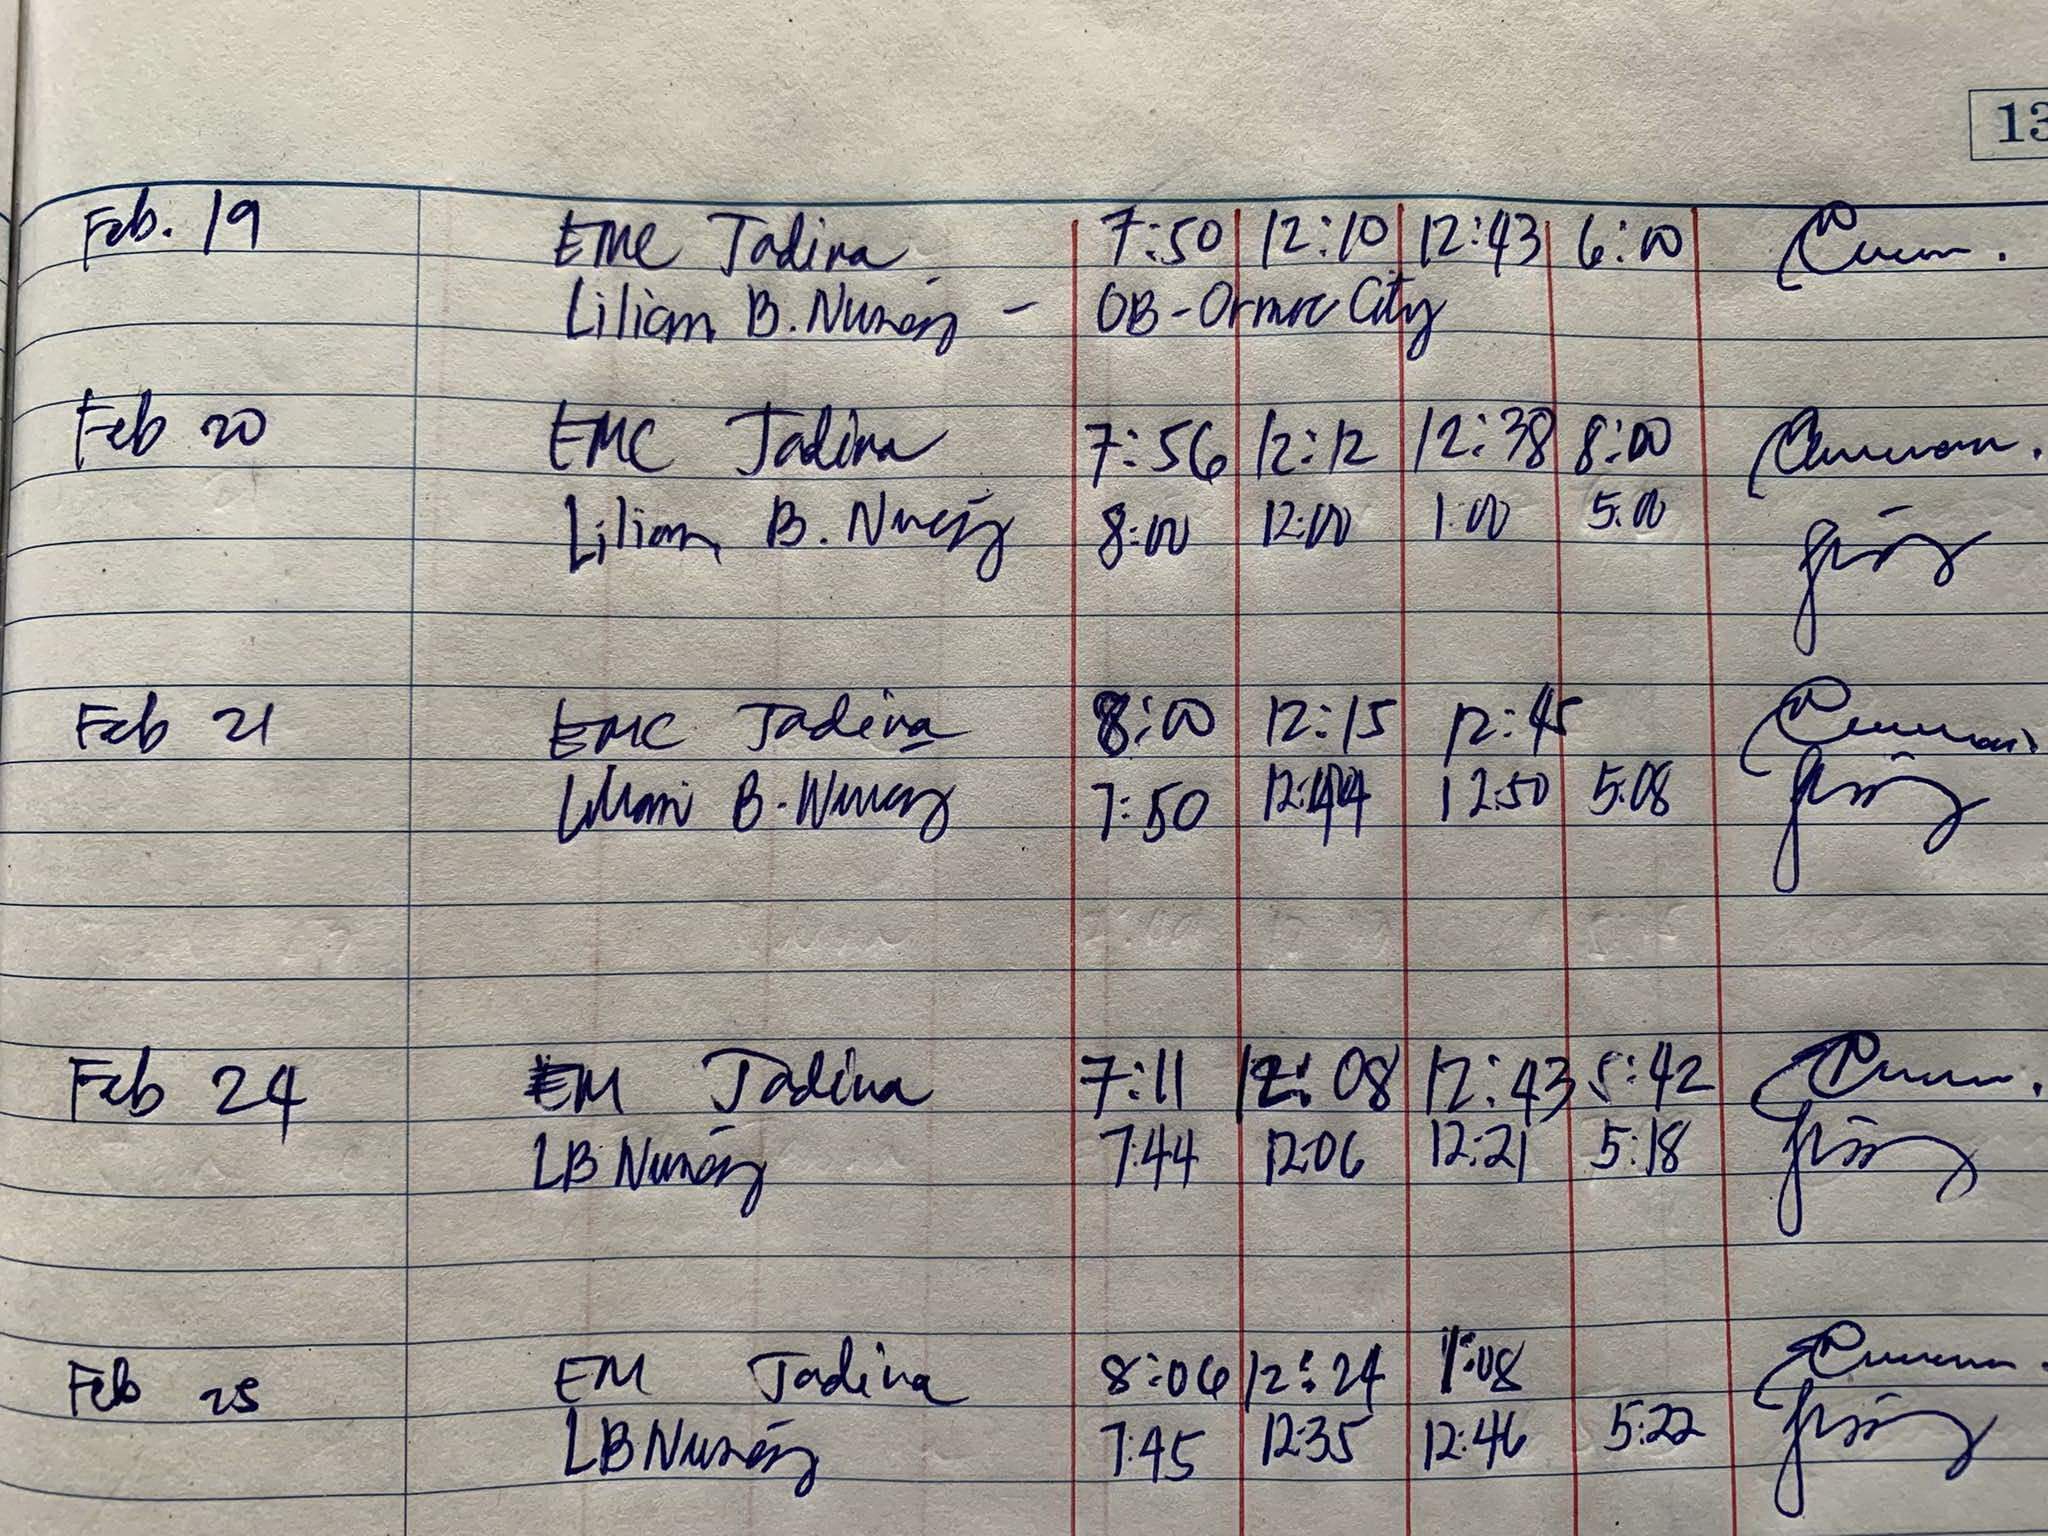 13
Feb. 19 EMC Jadina 7:50 12:10 12:43 6:00
Liliam B. Nuñez - OB - Ormoc City
Feb 20 EMC Jadina 7:56 12:12 12:38 8:00
Liliam B. Nuñez 8:00 12:00 1:00 5:00
Feb 21 EMC Jadina 8:00 12:15 12:45
B. Nuñez 7:50 12:50 5:08
Feb 24 EM Jadina 7:11 12:08 12:43 5:42
LB Nuñez 7:44 12:06 12:21 5:18
Feb 25 EM Jadina 8:06 12:24 1:08
LB Nuñez 7:45 12:35 12:46 5:22